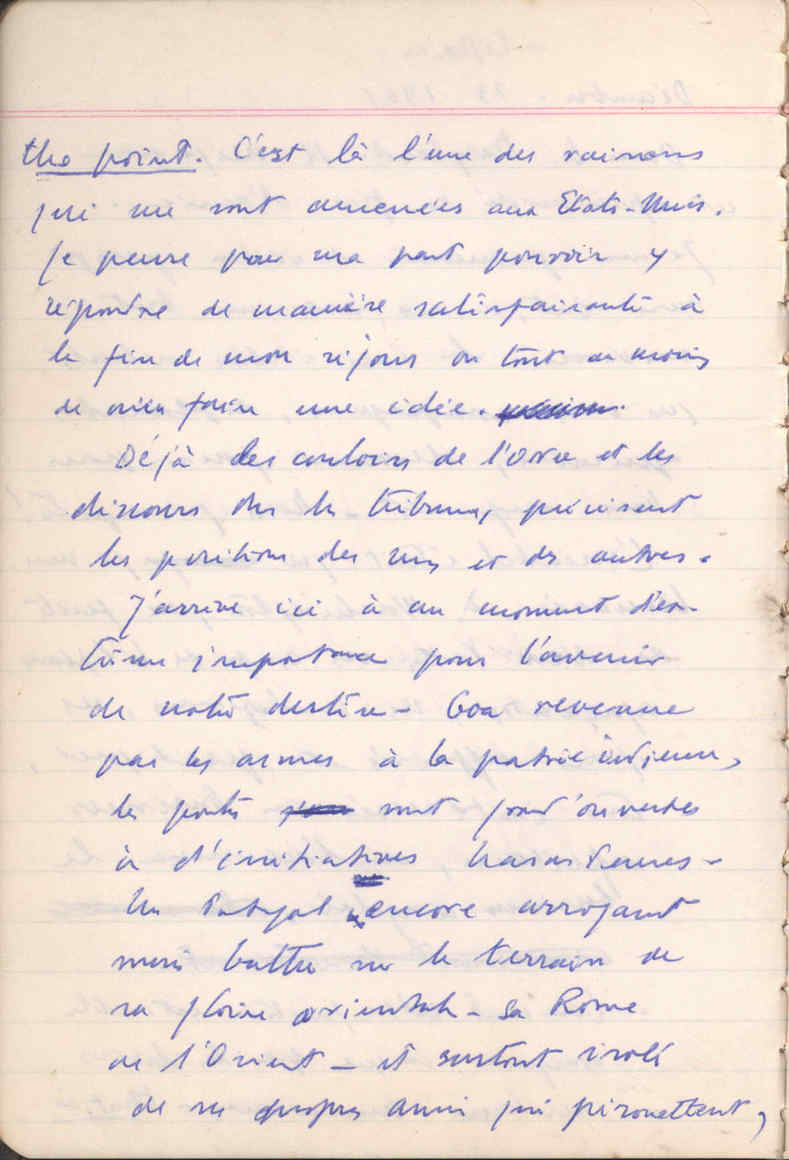 the point. C'est là l'une des raisons
qui me sont amenées aux Etats-Unis.
Je pense pour ma part pouvoir y
répondre de manière satisfaisante à
la fin de mon séjour ou tout au moins
de m'en faire une idée.
Déjà des couloirs de l'ONU et les
discours de la tribune, précisent
les positions des uns et des autres.
J'arrive ici à un moment d'ex-
trême importance pour l'avenir
de notre destin - Goa revenue
par les armes à la patrie indienne,
les portes sont grand'ouvertes
à d'initiatives hasardeuses -
Un Portugal encore arrogant
mais battu sur le terrain de
sa gloire orientale - sa Rome
de l'Orient - et surtout isolé
de ses propres amis qui pirouettent,